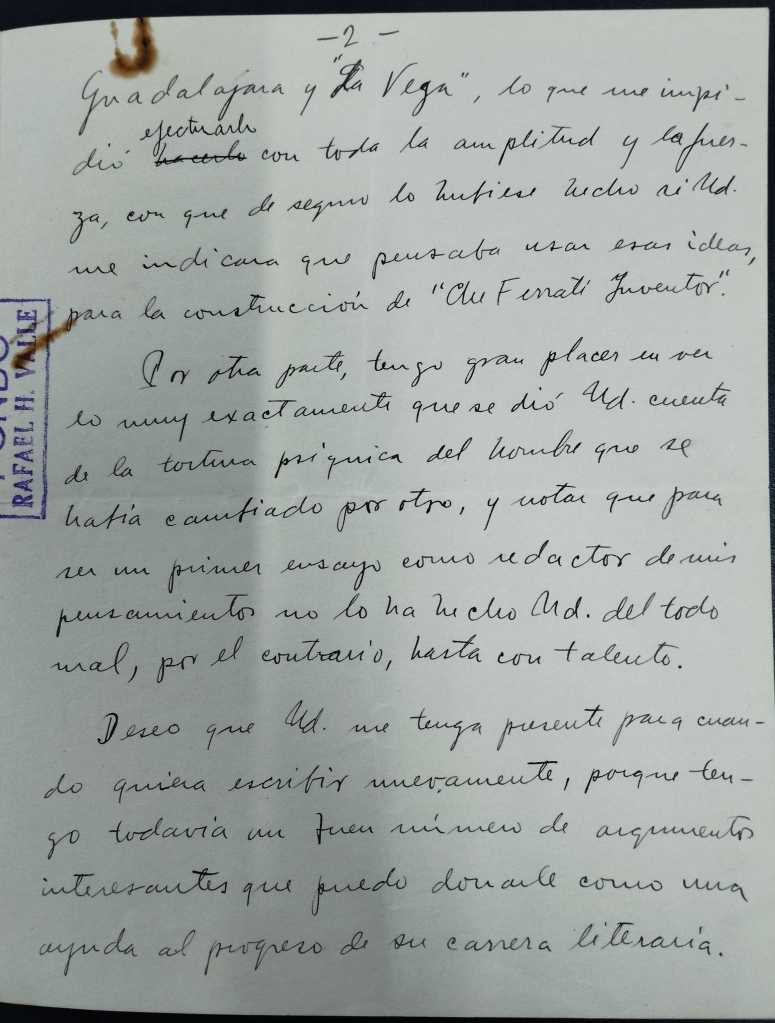 - 2 -
Guadalajara y "La Vega", lo que me impi-
efectuarlo
dió hacerlo con toda la amplitud y la fuer-
za, con que de seguro lo hubiese hecho si Ud.
me indicara que pensaba usar esas ideas,
para la construcción de "Che Ferrati Inventor".
Por otra parte, tengo gran placer en ver
lo muy exactamente que se dió Ud. cuenta
de la tortura psíquica del hombre que se
había cambiado por otro, y notar que para
ser un primer ensayo como redactor de mis
pensamientos no lo ha hecho Ud. del todo
mal, por el contrario, hasta con talento.
Deseo que Ud. me tenga presente para cuan-
do quiera escribir nuevamente, porque ten-
go todavía un buen número de argumentos
interesantes que puedo donarle como una
ayuda al progreso de su carrera literaria.
RAFAEL H. VALLE